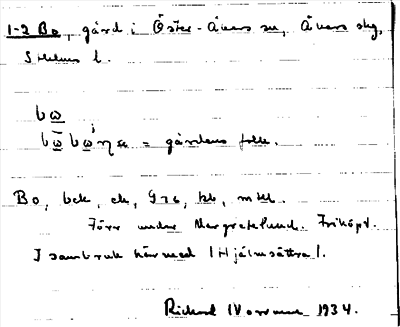 1-2 Bo, gård i Öster-Åkers sn, Åkers skg,
Sthlms l.
bω
= gårdens folk.
Bo, bek, ek, G 76, kb, mtl.
Förr under Margretelund. Friköpt.
I sambruk härmed (Hjälmsättra).
Richard 1934.